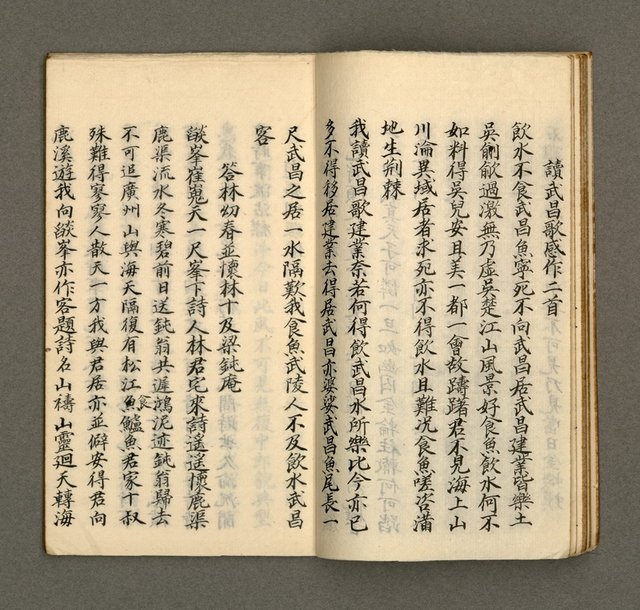 讀武昌歌感作二首
飲水不食武昌魚寧死不向武昌居武昌建業皆樂土
吳劊歈過激無乃虛吳楚江山風景好食魚飲水何不
如料得吳兒安且美一都一會故躊躇君不見海上山
川淪異域居者求死亦不得飲水且難况食魚嗟咨滿
地生荆棘
我讀武昌歌建業柰若何得飲武昌水所樂比今亦已
多不得移居建業去得居武昌亦婆娑武昌魚尾長一
尺武昌之居一水隔歎我食魚武陵人不及飲水武昌
客
答林幼春並懷林十及梁鈍庵
燄峯崔嵬天一尺峯下詩人林君宅來詩遥遥懷鹿渠
鹿渠流水冬寒碧前日送鈍翁共遲鴻泥迹鈍翁歸去
不可追廣州山與海天隔復有松江食魚鱸魚君家十叔
殊難得寥寥人散天一方我與君居亦並僻安得君向
鹿溪遊我向燄峯亦作客題詩名山禱山靈廻天轉海